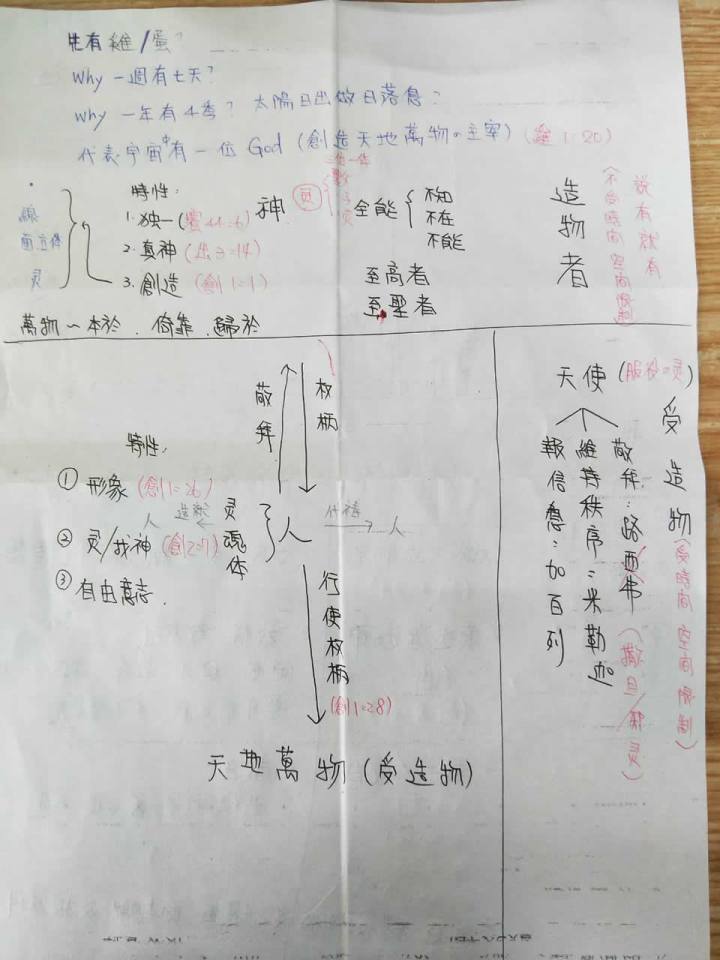 先有雞/蛋?
Why 一週有七天?
Why 一年有4季? 太陽日出做日落息?
代表宇宙中有一位 God (創造天地萬物の主宰) (羅1:20)
特性:
1. 独一 (賽44:6)
2. 真神 (出3:14)
3. 創造 (創1:1)
線
面立体
灵
神
灵
三位一体
全能
不知
不在
不能
至高者
至聖者
造物者
說有就有
(不受時間空間限制)
萬物~本於.倚靠.歸於
敬拜
权柄
特性:
① 形象 (創1:26)
② 灵/找神 (創2:7)
③ 自由意志.
灵
魂
体
人
人
人
行使权柄
(創1:28)
天地萬物(受造物)
天使 (服役の灵)
敬拜:路西弗 (撒旦/邪灵)
維持秩序:米勒迦
報信息:加百列
受造物 (受時間空間限制)